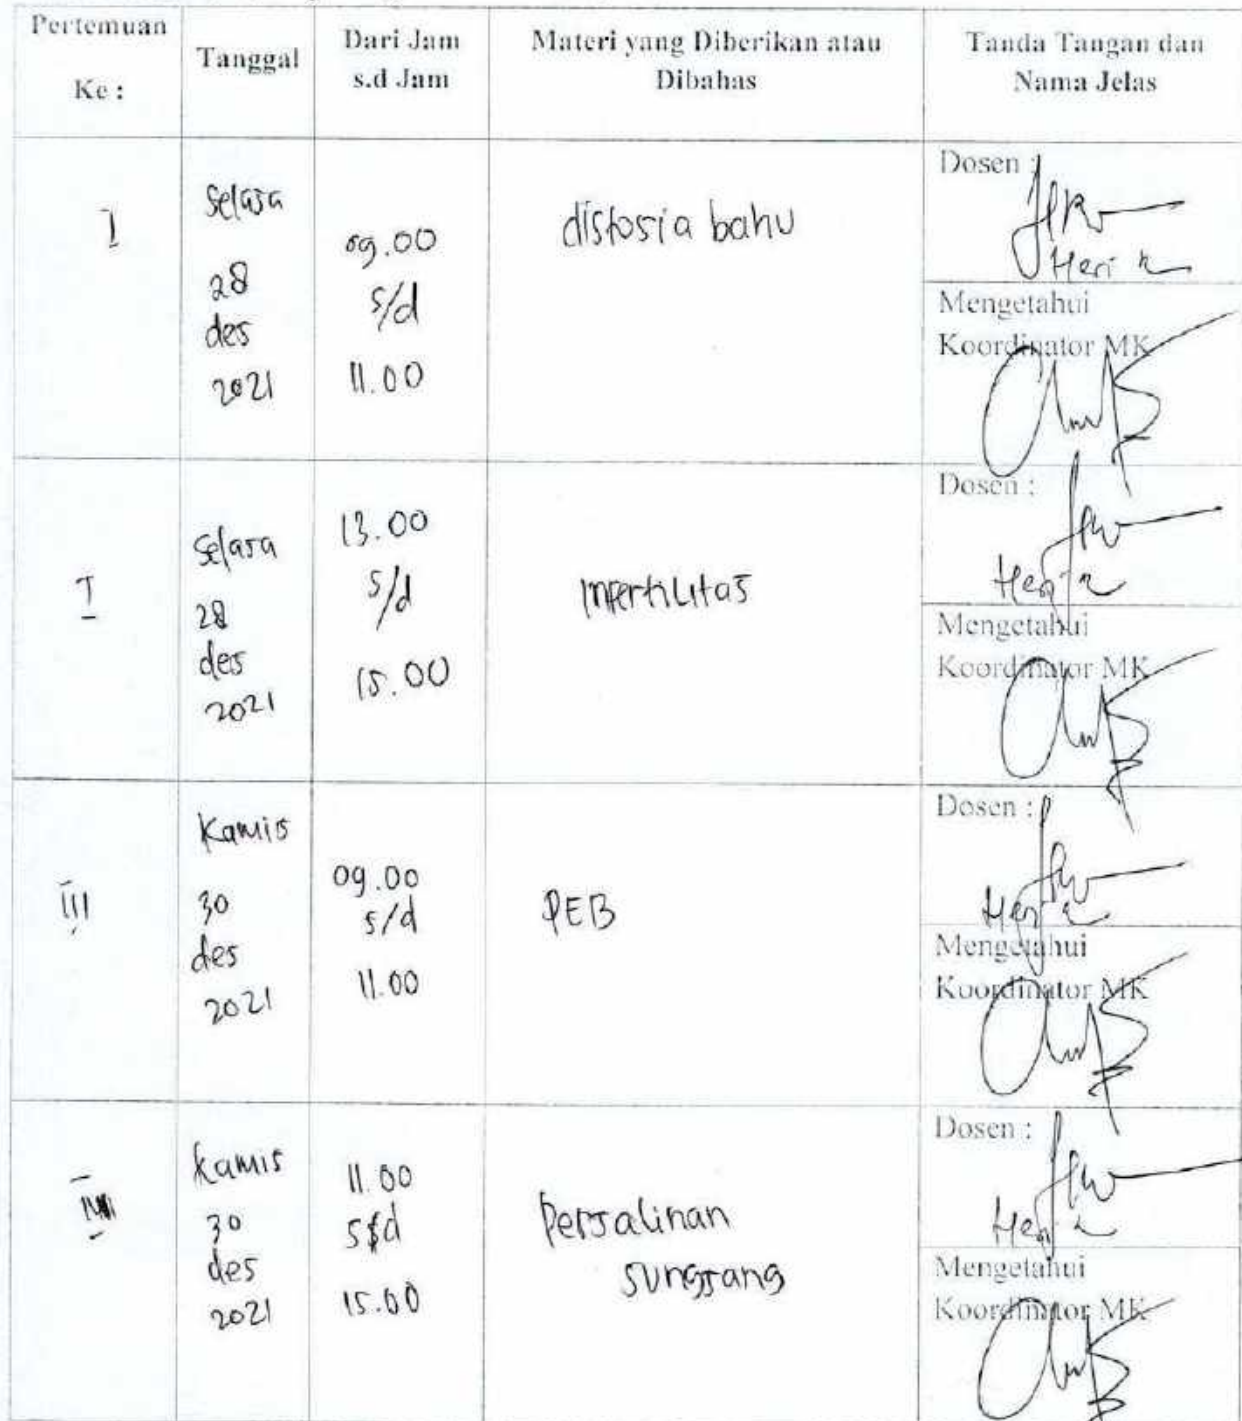 Pertemuan
Ke :
Tanggal
Dari Jam
s.d Jam
Materi yang Diberikan atau
Dibahas
Tanda Tangan dan
Nama Jelas
I
Selasa
28
des
2021
09.00
s/d
11.00
distosia bahu
Dosen :
Heri
Mengetahui
Koordinator MK
I
Selasa
28
des
2021
13.00
s/d
15.00
infertilitas
Dosen :
Heri
Mengetahui
Koordinator MK
III
Kamis
30
des
2021
09.00
s/d
11.00
PEB
Dosen :
Heri
Mengetahui
Koordinator MK
kamis
30
des
2021
11.00
s/d
15.00
Persalinan
sungsang
Dosen :
Heri
Mengetahui
Koordinator MK